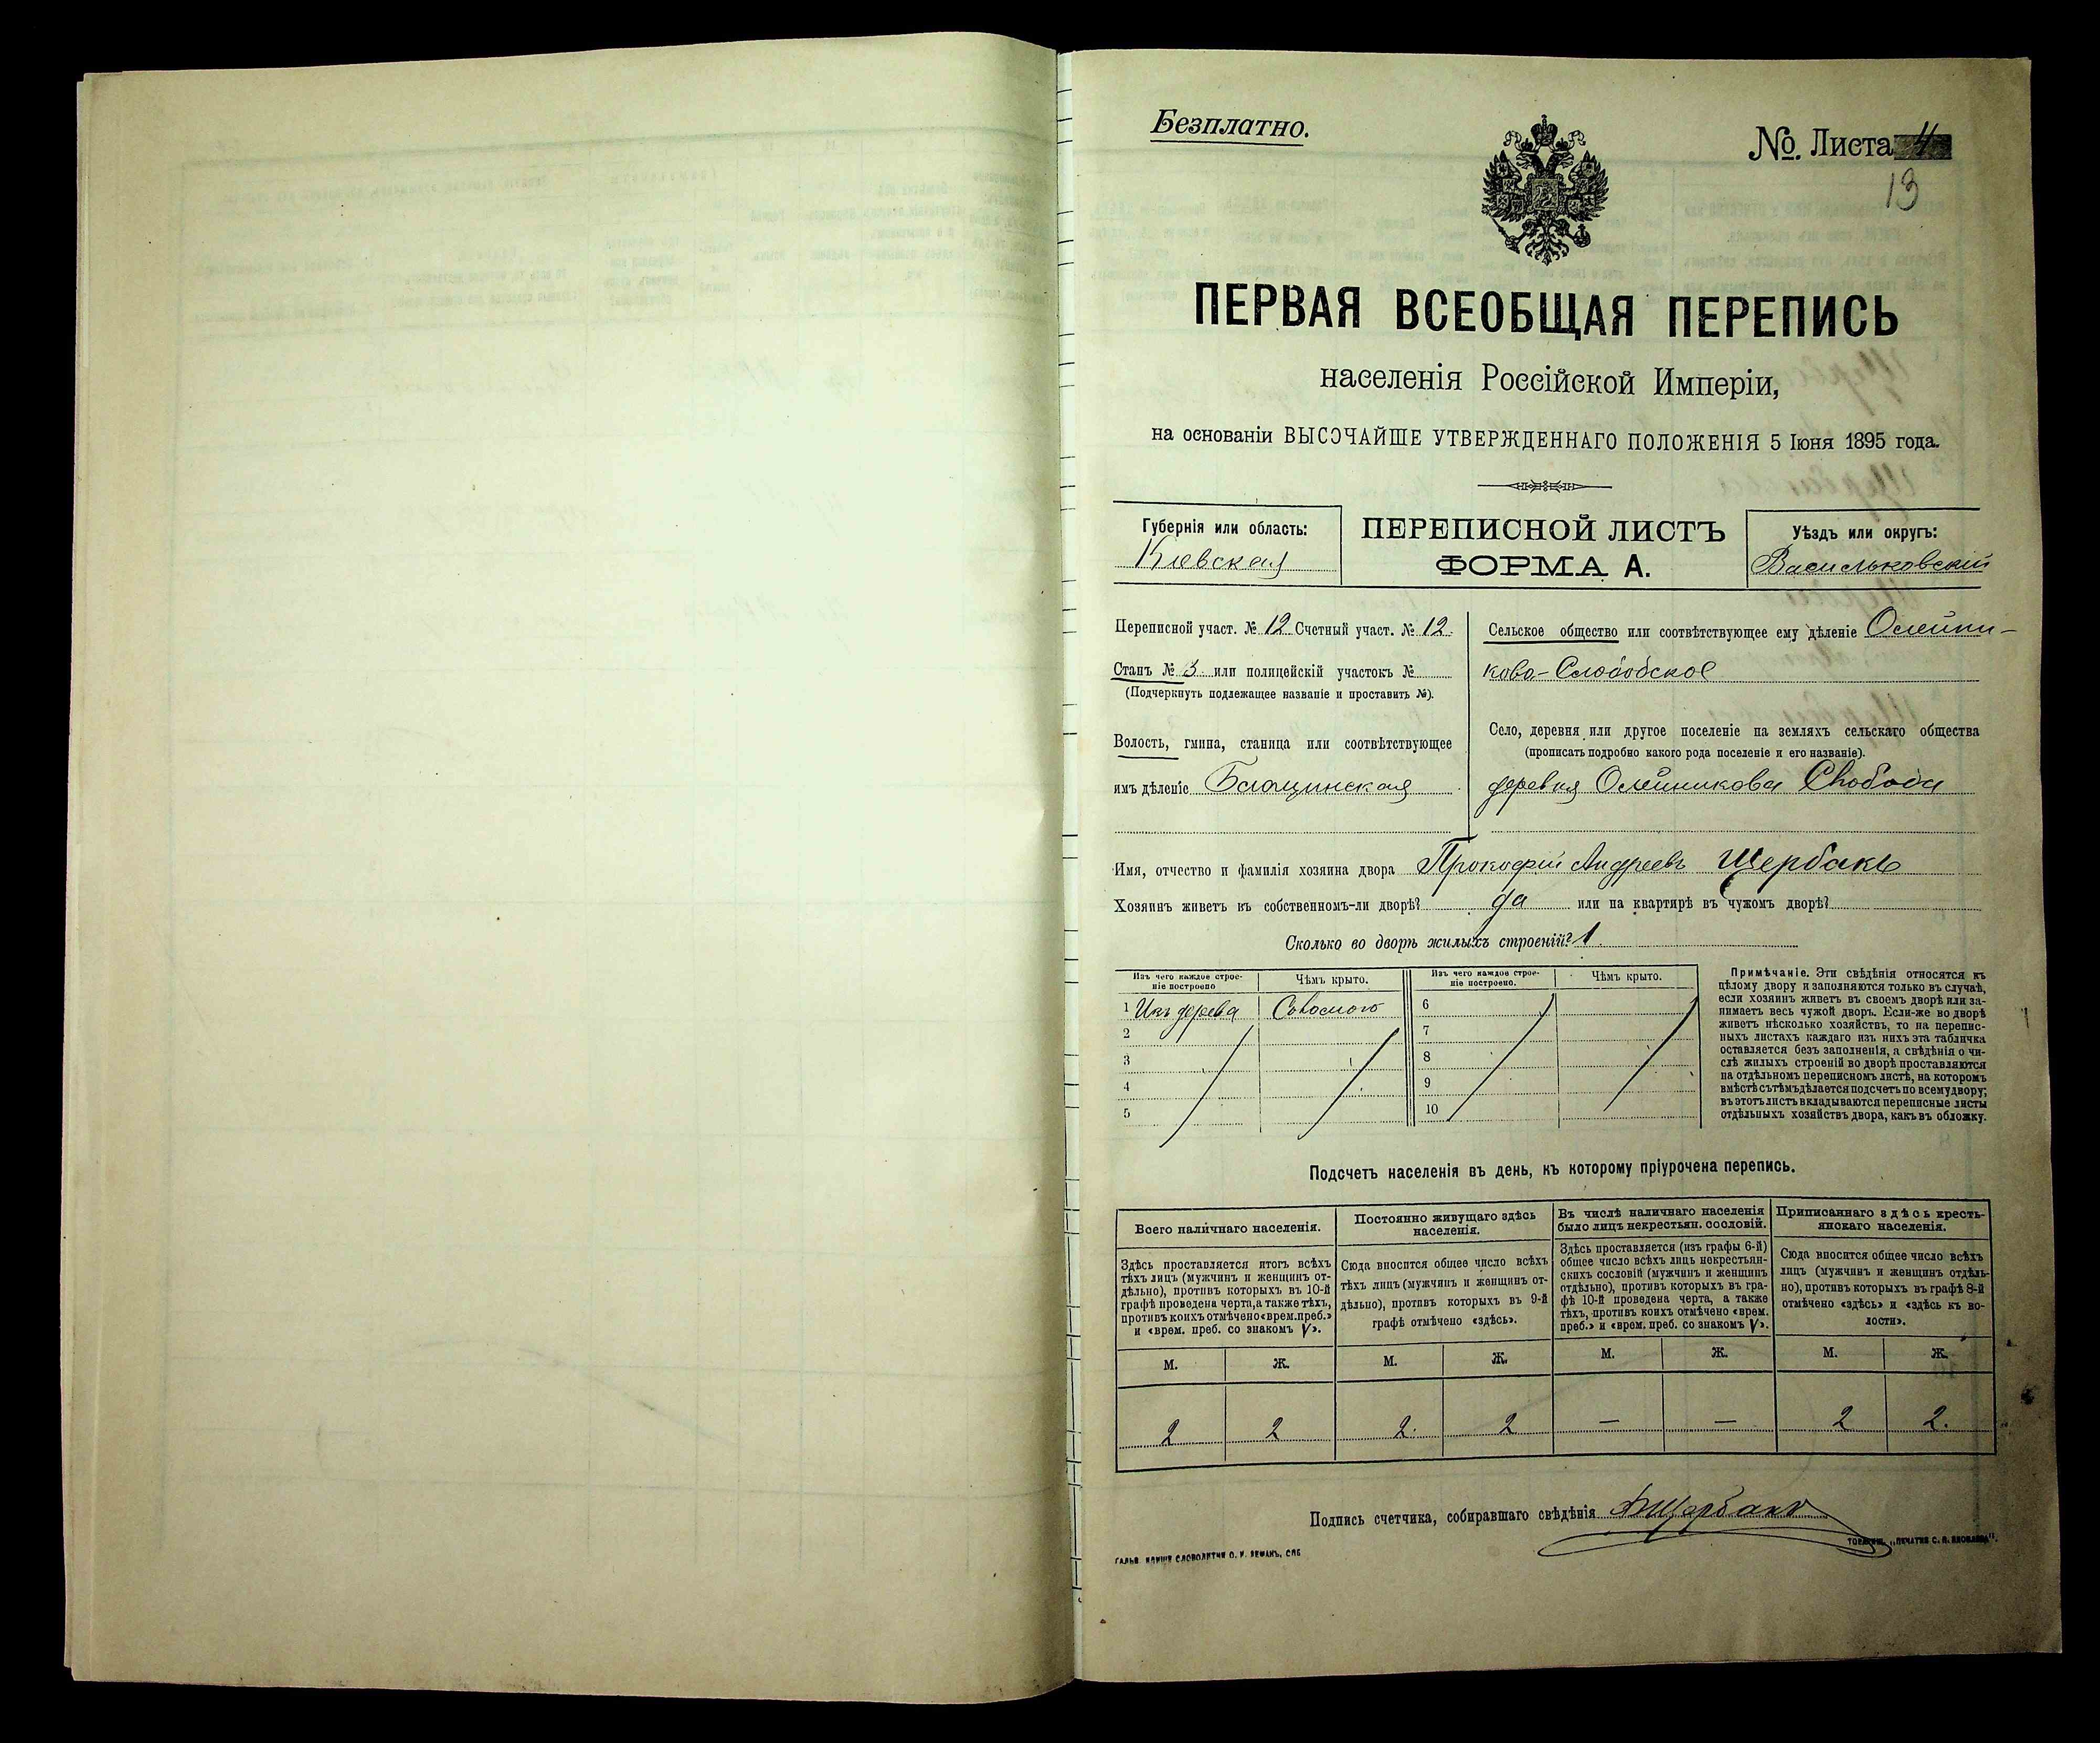 Безплатно.
№. Листа 4
13
ПЕРВАЯ ВСЕОБЩАЯ ПЕРЕПИСЬ
населенія Россійской Имперіи,
на основаніи ВЫСОЧАЙШЕ УТВЕРЖДЕННАГО ПОЛОЖЕНІЯ 5 Іюня 1895 года.
Губернія или область:
Кіевская
ПЕРЕПИСНОЙ ЛИСТЪ
ФОРМА А.
Уѣздъ или округъ:
Васильковскій
Переписной участ. № 12 Счетный участ. № 12.
Станъ № 3 или полицейскій участокъ №
(Подчеркнуть подлежащее названіе и проставить №).
Волость, гмина, станица или соотвѣтствующее
имъ дѣленіе
Сельское общество или соотвѣтствующее ему дѣленіе Олейни-
ково-Слободское
Село, деревня или другое поселеніе на земляхъ сельскаго общества
(прописать подробно какого рода поселеніе и его названіе).
деревня Олейникова Слобода
Имя, отчество и фамилія хозяина двора Прокофій Андреевъ Щербакъ
Хозяинъ живетъ въ собственномъ-ли дворѣ? да или на квартирѣ въ чужомъ дворѣ?
Сколько во дворѣ жилыхъ строеній? 1.
Изъ чего каждое строе-
ніе построено
Чѣмъ крыто.
Изъ чего каждое строе-
ніе построено.
Чѣмъ крыто.
1 Изъ дерева Соломою 6
2 7
3 8
4 9
5 10
Примѣчаніе. Эти свѣдѣнія относятся къ
цѣлому двору и заполняются только въ случаѣ,
если хозяинъ живетъ въ своемъ дворѣ или за-
нимаетъ весь чужой дворъ. Если-же во дворѣ
живетъ нѣсколько хозяйствъ, то на перепис-
ныхъ листахъ каждаго изъ нихъ эта табличка
оставляется безъ заполненія, а свѣдѣнія о чи-
слѣ жилыхъ строеній во дворѣ проставляются
на отдѣльномъ переписномъ листѣ, на которомъ
вмѣстѣ съ тѣмъ дѣлается подсчетъ по всему двору;
въ этотъ листъ вкладываются переписные листы
отдѣльныхъ хозяйствъ двора, какъ въ обложку.
Подсчетъ населенія въ день, къ которому пріурочена перепись.
Всего наличнаго населенія.
Здѣсь проставляется итогъ всѣхъ
тѣхъ лицъ (мужчинъ и женщинъ от-
дѣльно), противъ которыхъ въ 10-й
графѣ проведена черта, а также тѣхъ,
противъ коихъ отмѣчено «врем. преб.»
и «врем. преб. со знакомъ V».
Постоянно живущаго здѣсь
населенія.
Сюда вносится общее число всѣхъ
тѣхъ лицъ (мужчинъ и женщинъ от-
дѣльно), противъ которыхъ въ 9-й
графѣ отмѣчено «здѣсь».
Въ числѣ наличнаго населенія
было лицъ некрестьян. сословій.
Здѣсь проставляется (изъ графы 6-й)
общее число всѣхъ лицъ некрестьян-
скихъ сословій (мужчинъ и женщинъ
отдѣльно), противъ которыхъ въ гра-
фѣ 10-й проведена черта, а также
тѣхъ, противъ коихъ отмѣчено «врем.
преб.» и «врем. преб. со знакомъ V».
Приписаннаго здѣсь кресть-
янскаго населенія.
Сюда вносится общее число всѣхъ
лицъ (мужчинъ и женщинъ отдѣль-
но), противъ которыхъ въ графѣ 8-й
отмѣчено «здѣсь» и «здѣсь къ во-
лости».
М. Ж. М. Ж. М. Ж. М. Ж.
2 2 2. 2 — — 2 2.
Подпись счетчика, собиравшаго свѣдѣнія Щербакъ